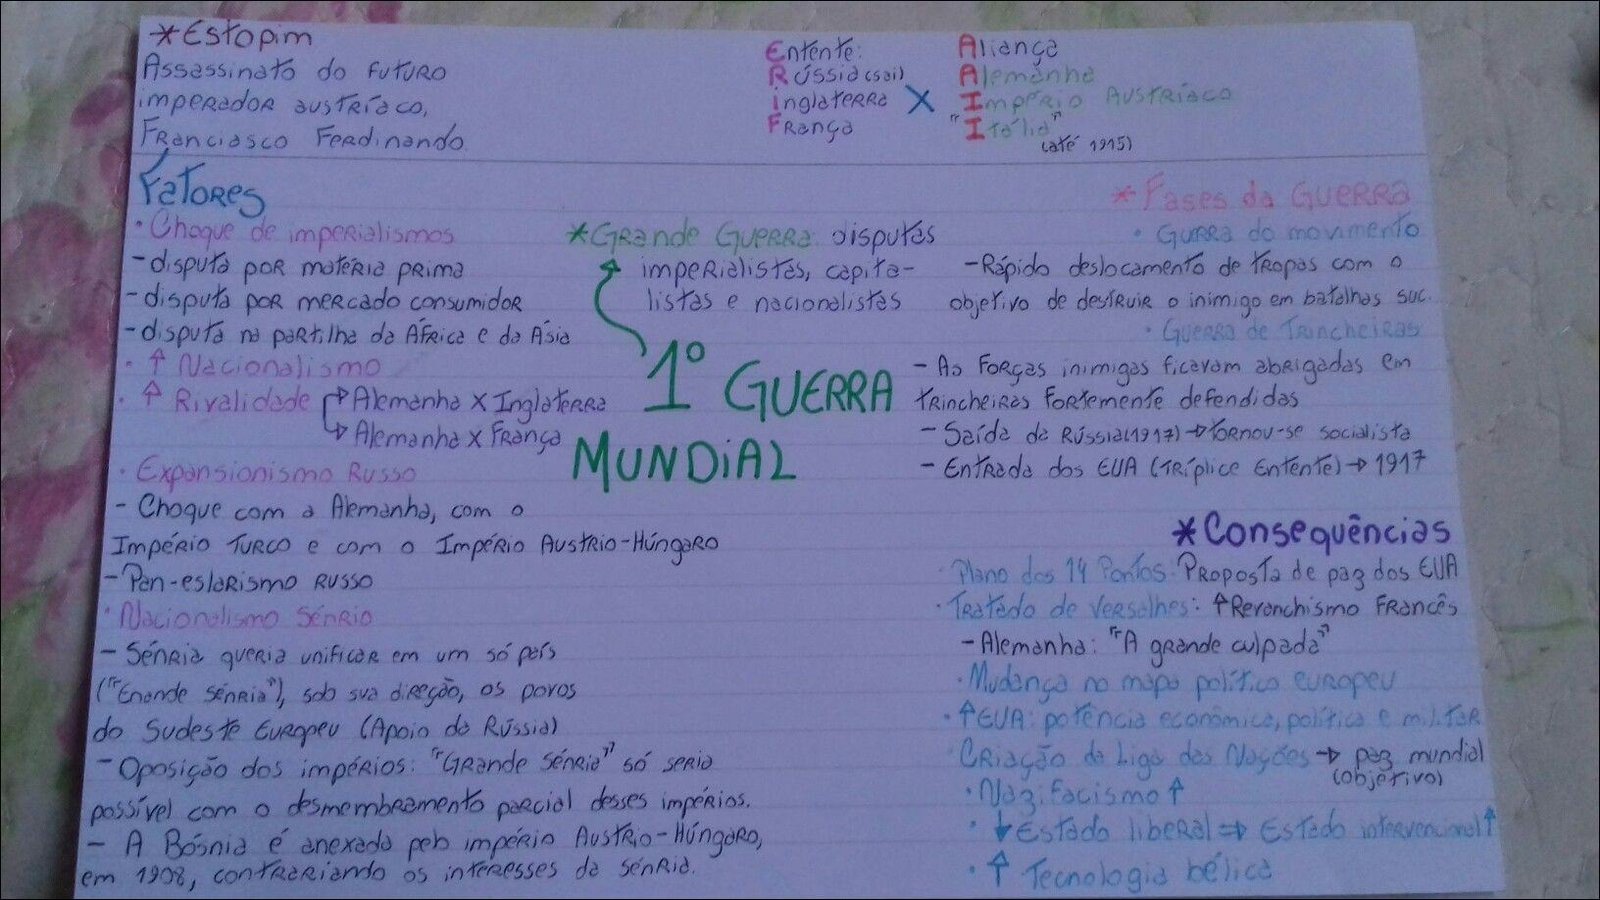 *Estopim
Assassinato do futuro
imperador austríaco,
Franciasco Ferdinando
Entente:
Rússia (sai)
Inglaterra
França
X
Aliança
Alemanha
Império Austríaco
"Itália"
(até 1915)
Fatores
• Choque de imperialismos
- disputa por matéria prima
- disputa por mercado consumidor
- disputa na partilha da África e da Ásia
• ↑ Nacionalismo
• ↑ Rivalidade → Alemanha X Inglaterra
→ Alemanha X França
• Expansionismo Russo
- Choque com a Alemanha, com o
Império Turco e com o Império Austrio-Húngaro
- Pan-eslarismo russo
• Nacionalismo Sénrio
- Sénria queria unificar em um só país
("Enande Sénria"), sob sua direção, os povos
do Sudeste Europeu (Apoio da Rússia)
- Oposição dos impérios: "Grande Sénria" só seria
possível com o desmembramento parcial desses impérios.
- A Bósnia é anexada pelo império Austrio-Húngaro,
em 1908, contrariando os interesses da Sénria.
*Grande Guerra: disputas
imperialistas, capita-
listas e nacionalistas
1º GUERRA
MUNDIAL
*Fases da Guerra
• Gurra do movimento
- Rápido deslocamento de tropas com o
objetivo de destruir o inimigo em batalhas suc.
• Guerra de Trincheiras
- As forças inimigas ficavam abrigadas em
trincheiras fortemente defendidas
- Saída da Rússia (1917) → tornou-se socialista
- Entrada dos EUA (Tríplice Entente) → 1917
*Consequências
• Plano dos 14 Pontos: Proposta de paz dos EUA
• Tratado de Versalhes: ↑ Revanchismo Francês
- Alemanha: "A grande culpada"
• Mudança no mapa político europeu
• ↑ EUA: potência econômica, política e militar
Criação da Liga das Nações → paz mundial
(objetivo)
• Nazifacismo ↑
• ↓ Estado liberal ⇒ Estado intervencional ↑
• ↑ Tecnologia bélica